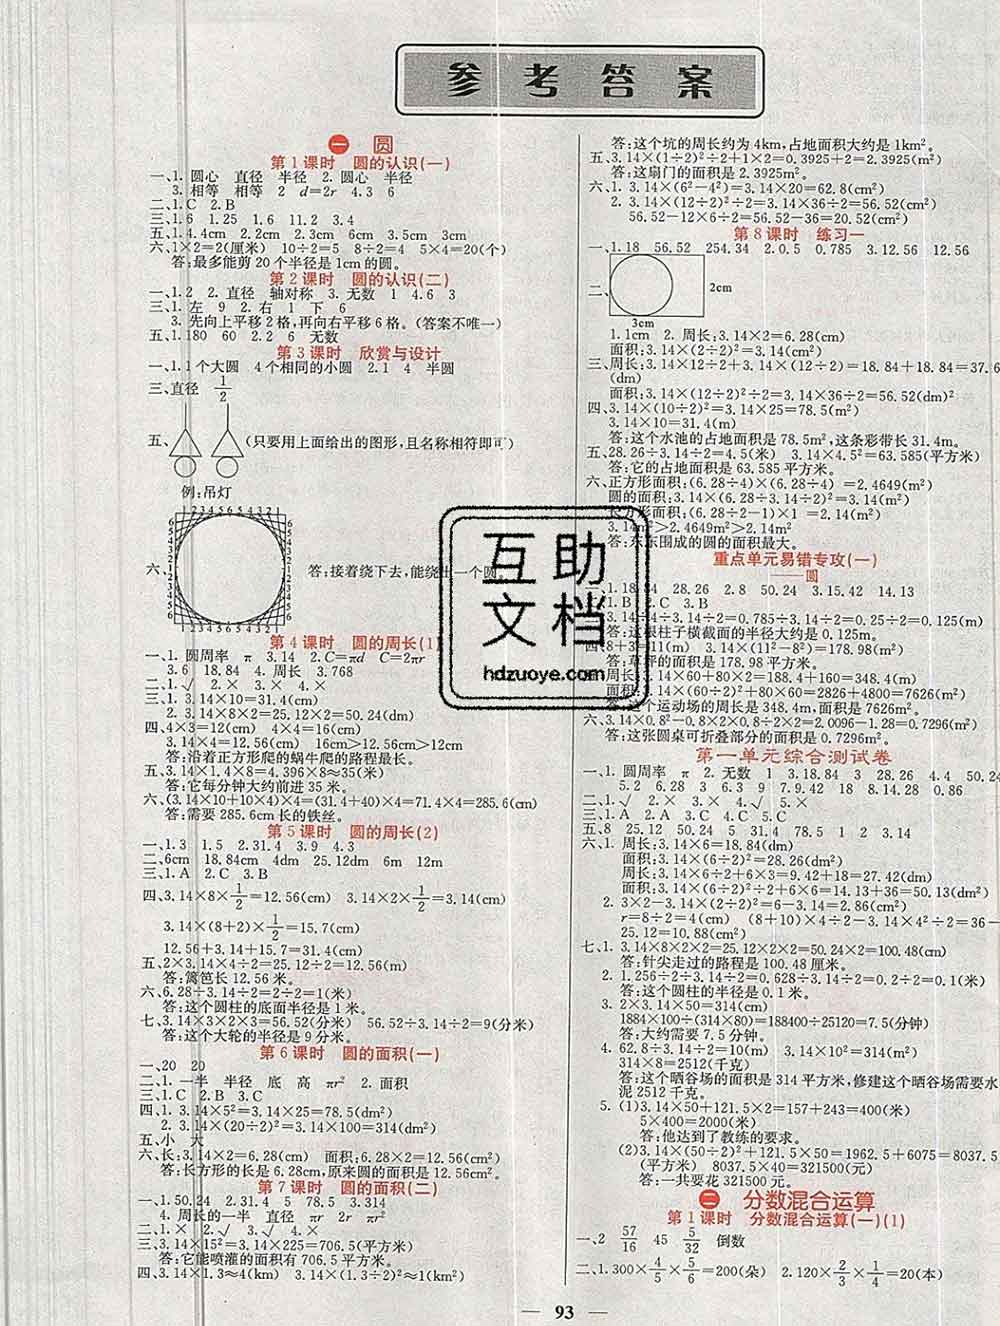 参考答案
一 圆
第1课时 圆的认识(一)
一、1. 圆心 直径 半径 2. 圆心 半径
3. 相等 相等 2 d=2r 4.3 6
二、1.C 2.B
三、1.6 1.25 1.6 11.2 3.4
五、1.4.4cm 2.2cm 2.3cm 6cm 3.5cm 3cm
六、1×2=2(厘米) 10÷2=5 8÷2=4 5×4=20(个)
答:最多能剪20个半径是1cm的圆。
第2课时 圆的认识(二)
一、1.2 2. 直径 轴对称 3. 无数 1 4.6 3
三、1. 左 9 2. 右 1 下 6
3. 先向上平移2格,再向右平移6格。(答案不唯一)
五、1.180 60 2.2 6 无数
第3课时 欣赏与设计
一、1.1个大圆 4个相同的小圆 2.1 4 半圆
三、直径 1/2
五、(只要用上面给出的图形,且名称相符即可)
例:吊灯
六、答:接着绕下去,能绕出一个圆。
第4课时 圆的周长(1)
一、1. 圆周率 π 3.14 2.C=πd C=2πr
3.6 18.84 4. 周长 3.768
二、1.√ 2.× 3.× 4.×
三、1.3.14×10=31.4(cm)
2. 3.14×8×2=25.12×2=50.24(dm)
四、4×3=12(cm) 4×4=16(cm)
3.14×4=12.56(cm) 16cm>12.56cm>12cm
答:沿着正方形爬的蜗牛爬的路程最长。
五、3.14×1.4×8=4.396×8≈35(米)
答:它每分钟大约前进35米。
六、(3.14×10+10×4)×4=(31.4+40)×4=71.4×4=285.6(cm)
答:需要285.6cm长的铁丝。
第5课时 圆的周长(2)
一、1.3 1.5 2.31.4 3.9 4.3
二、6cm 18.84cm 4dm 25.12dm 6m 12m
三、1.A 2.C 3.B
四、3.14×8×1/2=12.56(cm) 3.14×2×1/2=3.14(cm)
3.14×(8+2)×1/2=15.7(cm)
12.56+3.14+15.7=31.4(cm)
五、2×3.14×4÷2=25.12÷2=12.56(m)
答:篱笆长12.56米。
六、6.28÷3.14÷2=2÷2=1(米)
答:这个圆柱的底面半径是1米。
七、3.14×3×2×3=56.52(分米) 56.52÷3.14÷2=9(分米)
答:这个大轮的半径是9分米。
第6课时 圆的面积(一)
一、20 20
二、1. 一半 半径 底 高 πr² 2. 面积
三、1.C 2.B 3.C
四、1. 3.14×5²=3.14×25=78.5(dm²)
2. 3.14×(20÷2)²=3.14×100=314(dm²)
五、小 大
六、长:3.14×2=6.28(cm) 面积:6.28×2=12.56(cm²)
答:长方形的长是6.28cm,原来圆的面积是12.56cm²。
第7课时 圆的面积(二)
一、1.50.24 2.31.4 5 78.5 3.314
4. 周长的一半 直径 πr 2r πr²
二、1.× 2.√ 3.√ 4.×
三、3.14×15²=3.14×225=706.5(平方米)
答:它能喷灌的面积有706.5平方米。
四、3.14×1.3≈4(km) 3.14×(1.3÷2)²≈1(km²)
答:这个坑的周长约为4km,占地面积大约是1km²。
五、3.14×(1÷2)²÷2+1×2=0.3925+2=2.3925(m²)
答:这扇门的面积是2.3925m²。
六、1. 3.14×(6²-4²)=3.14×20=62.8(cm²)
2. 3.14×(12÷2)²÷2=3.14×36÷2=56.52(cm²)
56.52-12×6÷2=56.52-36=20.52(cm²)
第8课时 练习一
一、1.18 56.52 254.34 2.0.5 0.785 3.12.56 12.56
二、
2cm
3cm
1.1cm 2. 周长:3.14×2=6.28(cm)
面积:3.14×(2÷2)²=3.14(cm²)
三、周长:3.14×12÷2+3.14×(12÷2)=18.84+18.84=37.6
(dm)
面积:3.14×(12÷2)²÷2=3.14×36÷2=56.52(dm)²
四、3.14×(10÷2)²=3.14×25=78.5(m²)
3.14×10=31.4(m)
答:这个水池的占地面积是78.5m²,这条彩带长31.4m。
五、28.26÷3.14÷2=4.5(米) 3.14×4.5²=63.585(平方米)
答:它的占地面积是63.585平方米。
六、正方形面积:(6.28÷4)×(6.28÷4)=2.4649(m²)
圆的面积:3.14×(6.28÷3.14÷2)²=3.14(m²)
长方形面积:(6.28÷2-1)×1=2.14(m²)
3.14m²>2.4649m²>2.14m²
答:东东围成的圆的面积最大。
重点单元易错专攻(一)
——圆
一、1.18.84 28.26 2.8 50.24 3.15.42 14.13
1.B 2.C 3.B
3.14÷4÷3.14÷2=0.785÷3.14÷2=0.25÷2=0.125(m)
答:这根柱子横截面的半径大约是0.125m。
四、8+3=11(m) 3.14×(11²-8²)=178.98(m²)
答:草坪的面积是178.98平方米。
周长:3.14×60+80×2=188.4+160=348.4(m)
面积:3.14×(60÷2)²+80×60=2826+4800=7626(m²)
答:这个运动场的周长是348.4m,面积是7626m²。
六、3.14×0.8²-0.8×2×0.8÷2×2=2.0096-1.28=0.7296(m²)
答:这张圆桌可折叠部分的面积是0.7296m²。
第一单元综合测试卷
一、1. 圆周率 π 2. 无数 1 3.18.84 3 28.26 4.4 50.24
5.2 6.28 3 6.3 9 7.9.42 18 8.14.28 0.86
二、1.√ 2.× 3.× 4.√ 5.×
三、1.A 2.A 3.C 4.C 5.C
五、8 25.12 50.24 5 31.4 78.5 1 2 3.14
六、1. 周长:3.14×6=18.84(dm)
面积:3.14×(6÷2)²=28.26(dm²)
周长:3.14×6÷2+6×3=9.42+18=27.42(dm)
面积:3.14×(6÷2)²÷2+6×6=14.13+36=50.13(dm²)
2. 3×2-3.14×(2÷2)²=6-3.14=2.86(cm²)
r=8÷2=4(cm) (8+10)×4÷2-3.14×4²÷2=36-
25.12=10.88(cm²)
七、1. 3.14×8×2×2=25.12×2×2=50.24×2=100.48(cm)
答:针尖走过的路程是100.48厘米。
2. 1.256÷2÷3.14÷2=0.628÷3.14÷2=0.2÷2=0.1(米)
答:这个圆柱的半径是0.1米。
3. 2×3.14×50=314(cm)
1884×100÷(314×80)=188400÷25120=7.5(分钟)
答:大约需要7.5分钟。
4. 62.8÷3.14÷2=10(m) 3.14×10²=314(m²)
314×8=2512(千克)
答:这个晒谷场的面积是314平方米,修建这个晒谷场需要水
泥2512千克。
5. (1)3.14×50+121.5×2=157+243=400(米)
5×400=2000(米)
答:他达到了教练的要求。
(2)3.14×(50÷2)²+121.5×50=1962.5+6075=8037.5
(平方米) 8037.5×40=321500(元)
答:一共要花321500元。
二 分数混合运算
第1课时 分数混合运算(一)(1)
一、2 57/16 45 5/32 倒数
二、1.300×4/5×5/6=200(朵) 2.120×2/3×1/4=20(本)
93
互助
文档
hdzuoye.com